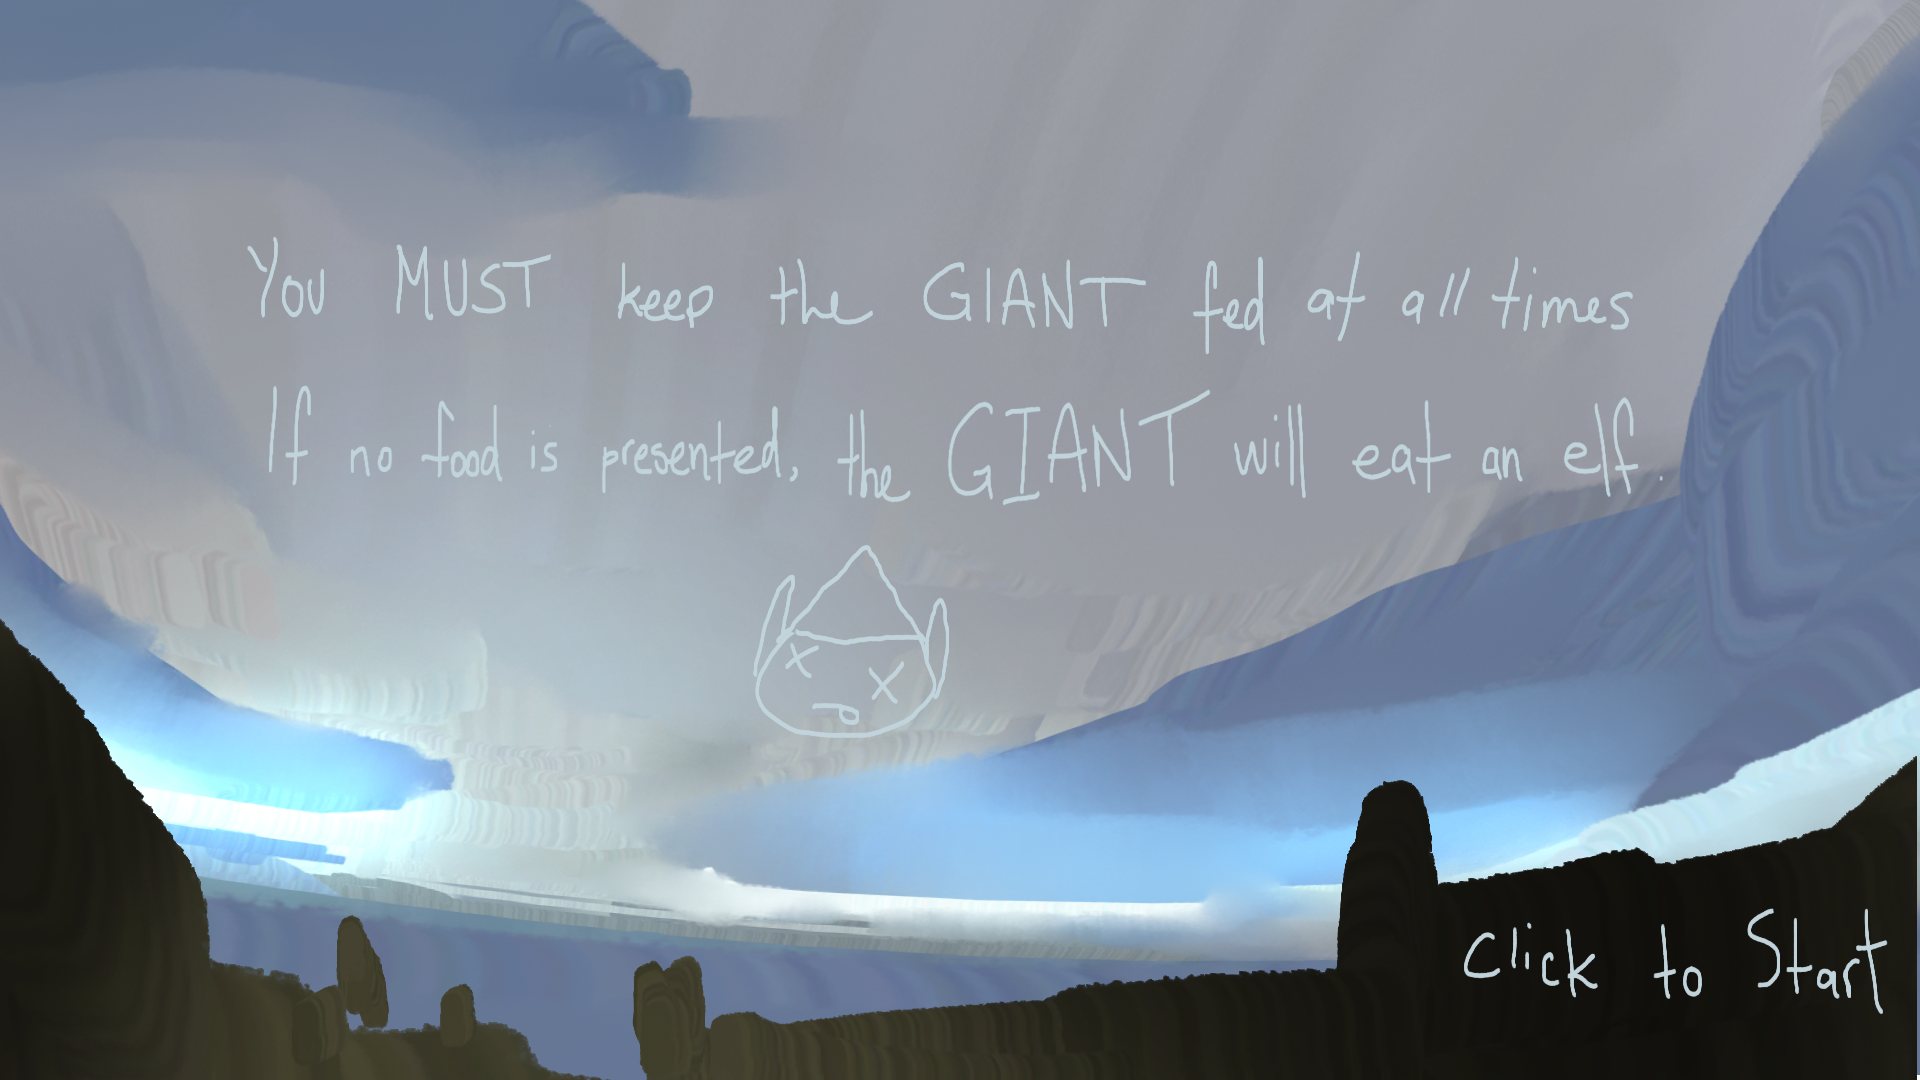 You MUST keep the GIANT fed at all times
If no food is presented, the GIANT will eat an elf.
Click to Start